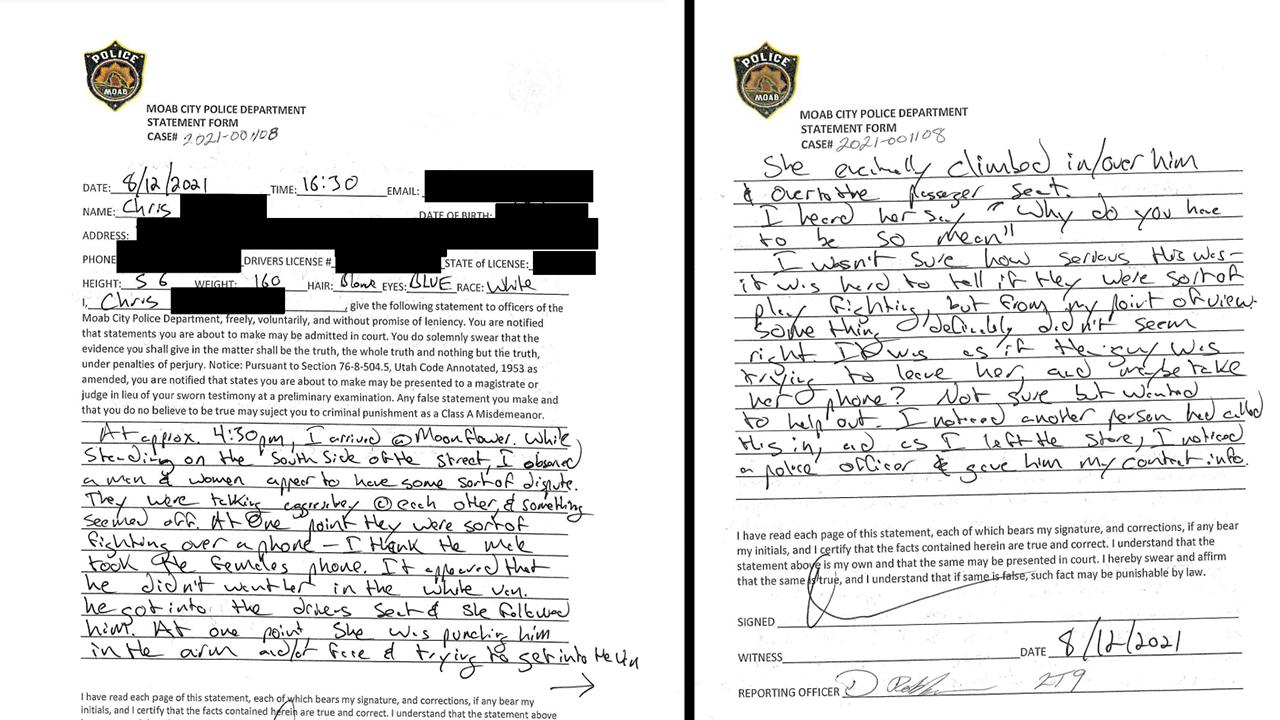 POLICE
MOAB
MOAB CITY POLICE DEPARTMENT
STATEMENT FORM
CASE# 2021-001108
DATE: 8/12/2021 TIME: 16:30 EMAIL:
NAME: Chris DATE OF BIRTH:
ADDRESS:
PHONE DRIVERS LICENSE # STATE of LICENSE:
HEIGHT: 5 6 WEIGHT: 160 HAIR: EYES: BLUE RACE: White
I, Chris , give the following statement to officers of the
Moab City Police Department, freely, voluntarily, and without promise of leniency. You are notified
that statements you are about to make may be admitted in court. You do solemnly swear that the
evidence you shall give in the matter shall be the truth, the whole truth and nothing but the truth,
under penalties of perjury. Notice: Pursuant to Section 76-8-504.5, Utah Code Annotated, 1953 as
amended, you are notified that states you are about to make may be presented to a magistrate or
judge in lieu of your sworn testimony at a preliminary examination. Any false statement you make and
that you do no believe to be true may suject you to criminal punishment as a Class A Misdemeanor.
At approx. 4:30pm, I arrived @ Moonflower. While
standing on the south side of the street, I observed
a man & women appear to have some sort of dispute.
They were talking aggressivley @ each other, & something
seemed off. At one point they were sort of
fighting over a phone - I think the male
took the females phone. It appeared that
he didn't want her in the white van.
he got into the drivers seat & she followed
him. At one point she was punching him
in the arm and/or face & trying to get into the van
→
I have read each page of this statement, each of which bears my signature, and corrections, if any bear my
initials, and I certify that the facts contained herein are true and correct. I understand the statement above
POLICE
MOAB
MOAB CITY POLICE DEPARTMENT
STATEMENT FORM
CASE# 2021-001108
She climbed in/over him
& over to the passenger seat.
I heard her say "Why do you have
to be so mean"
I wasn't sure how serious this was -
it was hard to tell if they were sort of
play fighting, but from my point of view.
something definitely didn't seem
right. It was as if the guy was
trying to leave her, and maybe take
her phone? Not sure but wanted
to help out. I noticed another person had called
this in, and as I left the store, I noticed
a police officer & gave him my contact info.
I have read each page of this statement, each of which bears my signature, and corrections, if any bear
my initials, and I certify that the facts contained herein are true and correct. I understand that the
statement above is my own and that the same may be presented in court. I hereby swear and affirm
that the same is true, and I understand that if same is false, such fact may be punishable by law.
SIGNED
WITNESS DATE 8/12/2021
REPORTING OFFICER